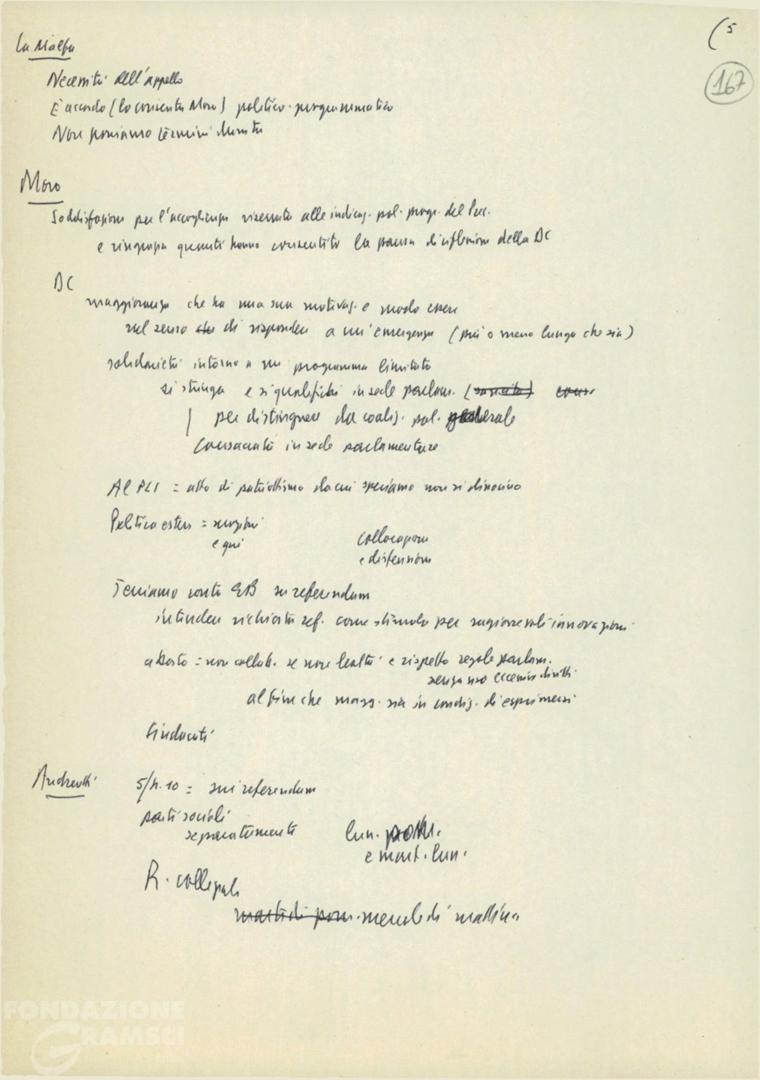 (5
167
La Malfa
Necessità dell'appello
È accordo (lo consenta Moro) politico-programmatico
Non poniamo termini
Moro
Soddisfazione per l'accoglienza riservata alle indicaz. pol. progr. del Pres.
e ringrazia quanti hanno consentito la pausa di riflessione della DC
DC
maggioranza che ha una sua motivaz. e modo essere
nel senso di rispondere a un'emergenza (più o meno lunga che sia)
solidarietà intorno a un programma limitato
si stringa e si qualifichi in sede parlam. (sancita) cons.
per distinguere da coaliz. pol. generale
Consacrata in sede parlamentare
Al PLI = atto di patriottismo da cui speriamo non si dimetino
Politica estera =
e qui
collocazione
e distensione
Teniamo conto su referendum
intendere richiesta ref. come stimolo per ragionevoli innovazioni
aborto = non collab. se non lealtà e rispetto regole parlam.
senza uso eccessivo diritti
al fine che magg. sia in condiz. di esprimersi
Sindacati
Andreotti
5/n. 10 = sui referendum
parti sociali
separatamente
lun. pom.
e mart. lun.
R. collegiale
martedì pom. mercoledì mattina
FONDAZIONE
GRAMSCI